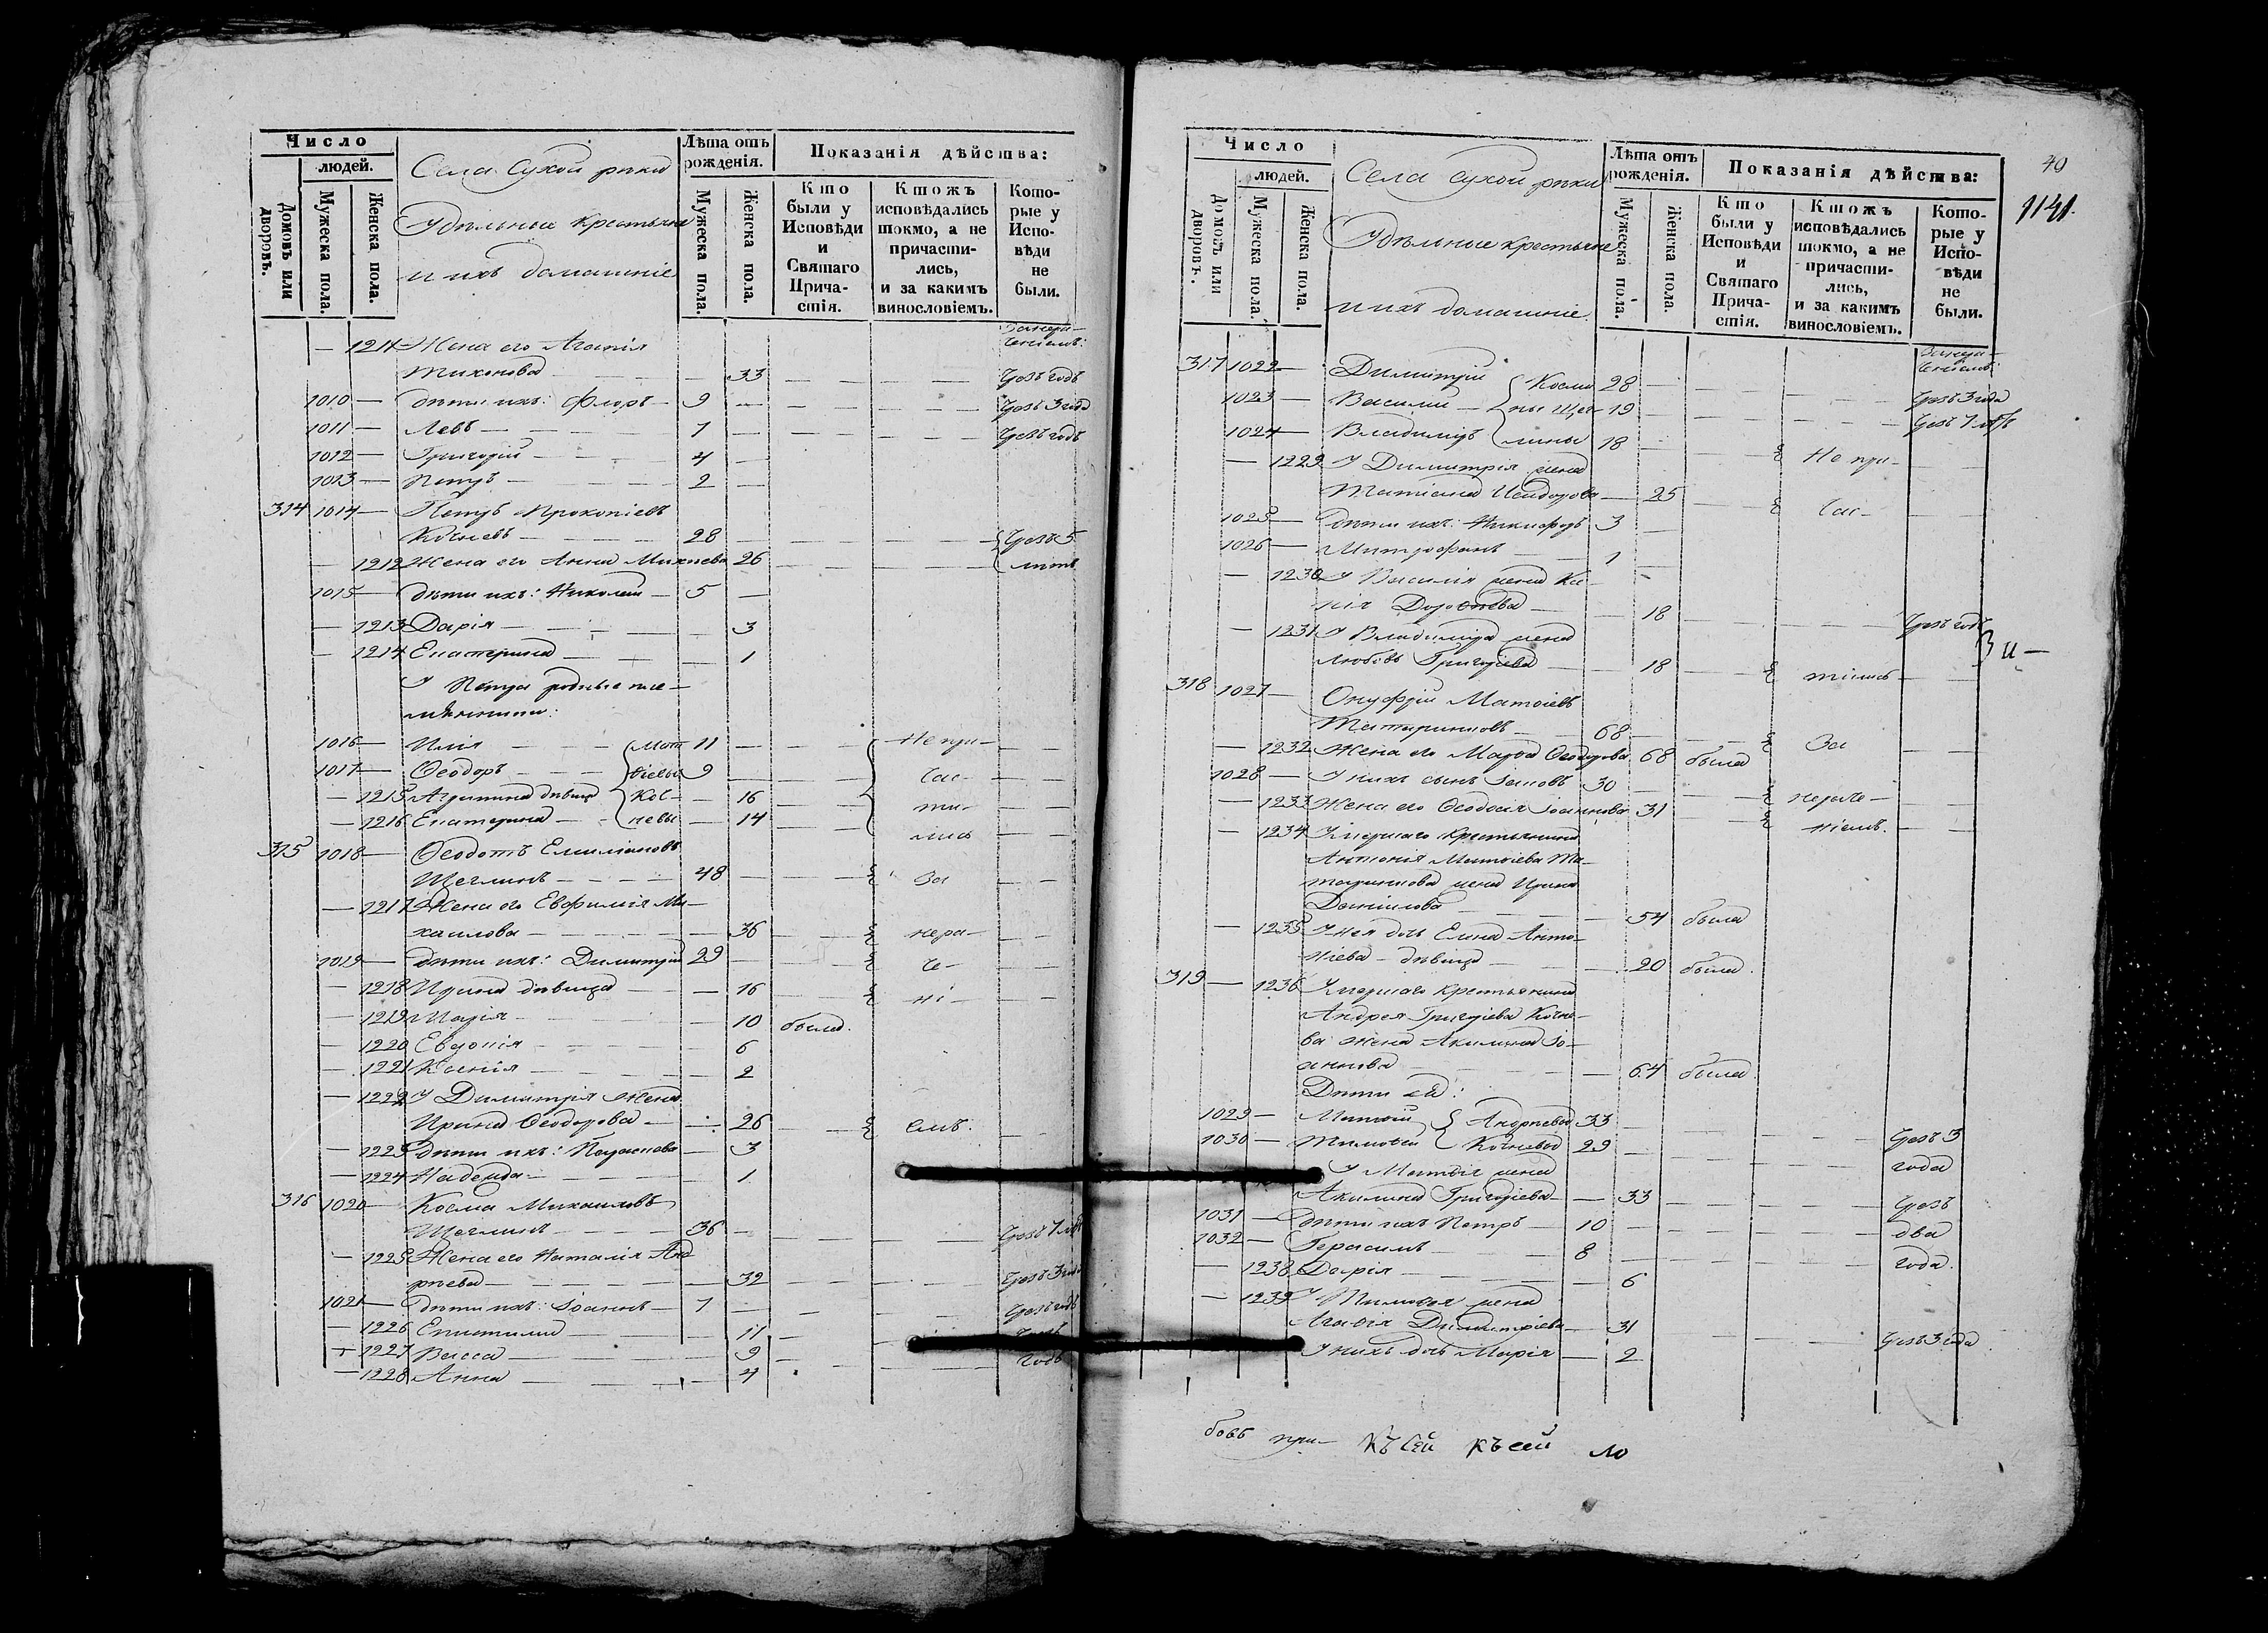 Число
людей.
Домовъ или дворовъ.
Мужеска пола.
Женска пола.
Села Сухой рѣки
Удѣльные крестьяне
и ихъ домашніе
Лѣта отъ рожденія.
Мужеска пола.
Женска пола.
Показанія дѣйства:
Кто были у Исповѣди и Святаго Причастія.
Ктожъ исповѣдались токмо, а не причастились, и за какимъ винословіемъ.
Которые у Исповѣди не были.
— 1211 Жена его Агапія
Тихонова — 33 — — —
1010 — дѣти ихъ: Флоръ — 9 — — —
1011 — Левъ — 7 — — —
1012 — Григорій — 4 —
1013 — Петръ — 2 —
314 1014 — Петръ Прокопіевъ
28 — — — Чрезъ 5
— 1212 Жена его Анна 26 — — лѣтъ
1015 — дѣти ихъ: Николай — 5 —
— 1213 Дарія — 3
— 1214 Екатерина — 1
У Петра родные пле-
мянники:
1016 — Илія — 11 — Не при-
1017 — Ѳеодоръ — 9 — час-
— 1215 Агрипина дѣвица — 16 — ти-
— 1216 Екатерина — 14 — лись
315 1018 — Ѳеодотъ Емиліановъ
Щеглинъ — 48 — За
— 1217 Жена его Евфимія Ми-
хаилова — 36 — нера-
1019 — дѣти ихъ: Димитрій 29 — че-
— 1218 Ирина дѣвица — 16 — ні-
— 1219 Марія — 10 была.
— 1220 Евдокія — 6
— 1221 Ксенія — 2
— 1222 У Димитрія жена
Ирина Ѳеодорова — 26 — емъ.
— 1223 дѣти ихъ: — 3
— 1224 Надежда — 1
316 1020 — Косма Михаиловъ
Щеглинъ — 36 — Чрезъ 7 лѣтъ
— 1225 Жена его Наталія Анд-
рѣева — 32 — Чрезъ 3 года
1021 — дѣти ихъ: Іоаннъ — 7 — Чрезъ годъ
— 1226 — 11 —
— 1227 Васса — 9 — годъ
— 1228 Анна — 4
Число
людей.
Домовъ или дворовъ.
Мужеска пола.
Женска пола.
Села Сухой рѣки
Удѣльные крестьяне
и ихъ домашніе.
Лѣта отъ рожденія.
Мужеска пола.
Женска пола.
Показанія дѣйства:
Кто были у Исповѣди и Святаго Причастія.
Ктожъ исповѣдались токмо, а не причастились, и за какимъ винословіемъ.
Которые у Исповѣди не были.
40
1141.
317 1022 — Димитрій Косми- 28 —
1023 — Василій — ны Щег- 19 — Чрезъ 3 года
1024 — Владиміръ лины 18 —
— 1229 У Димитрія жена Не при-
Татіана — 25 —
1025 — дѣти ихъ: Никифоръ 3 — час-
1026 — Митрофанъ — 1 —
— 1230 У Василія жена Ксе-
нія Дороѳеева — 18 — Чрезъ годъ
— 1231 У Владиміра жена
Любовь Григоріева — 18 — тились
318 1027 — Онуфрій Матѳіевъ
68 — За
— 1232 Жена его Марѳа Ѳеодорова 68 была
1028 — У нихъ сынъ Іаковъ 30
— 1233 Жена его Ѳеодосія Іоаннова 31 — нераче-
— 1234 Умершаго крестьянина ніемъ.
Антонія Матѳіева Та-
жена Ирина
Даниилова — 54 была
— 1235 У нея дочь Елена Анто-
ніева — дѣвица — 20 была.
319 — 1236 Умершаго крестьянина
Андрея Григоріева
ва жена Акилина Іо-
аннова — 64 была
Дѣти ея:
1029 — Матѳій Андрѣевы 33 —
1030 — Тимоѳей 29 — Чрезъ 3
У Матѳія жена года
Акилина Григоріева — 33 — Чрезъ
1031 — дѣти ихъ Петръ — 10 — два
1032 — Герасимъ — 8 — года.
— 1238 Дарія — 6
— 1239 У Тимоѳея жена
Агафія Димитріева — 31 — Чрезъ 3 года
У нихъ дочь Марія — 2
при- къ сей къ сей ло